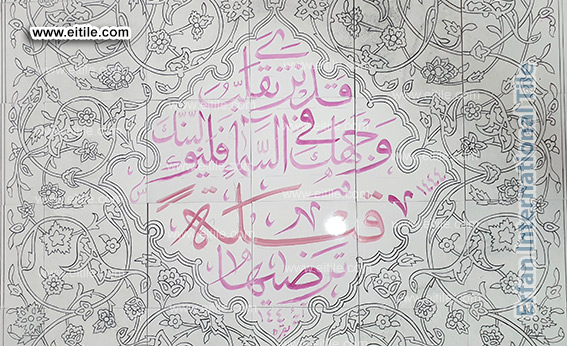 www.eitile.com
قد نرى تقلب
وجهك في السماء فلنولينك
١٤٤٤
قبلةً
ترضيها
١٤٤
Erfan International Tile